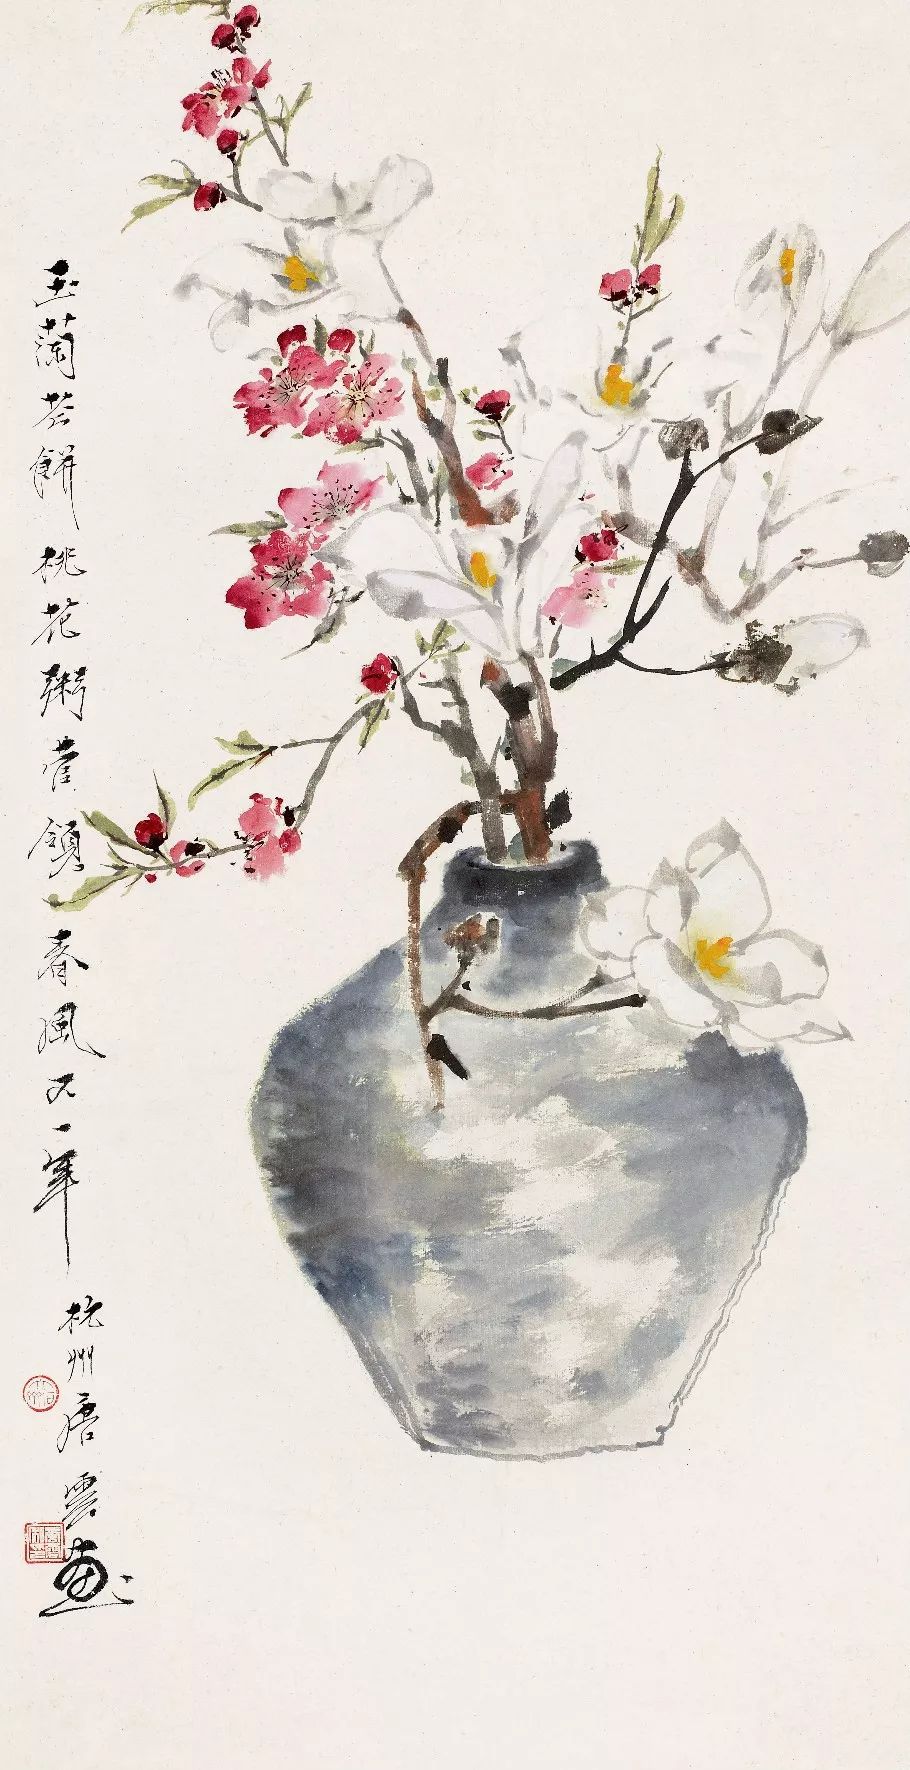 玉蘭花餅桃花粥管領春風又一年 杭州唐雲畫